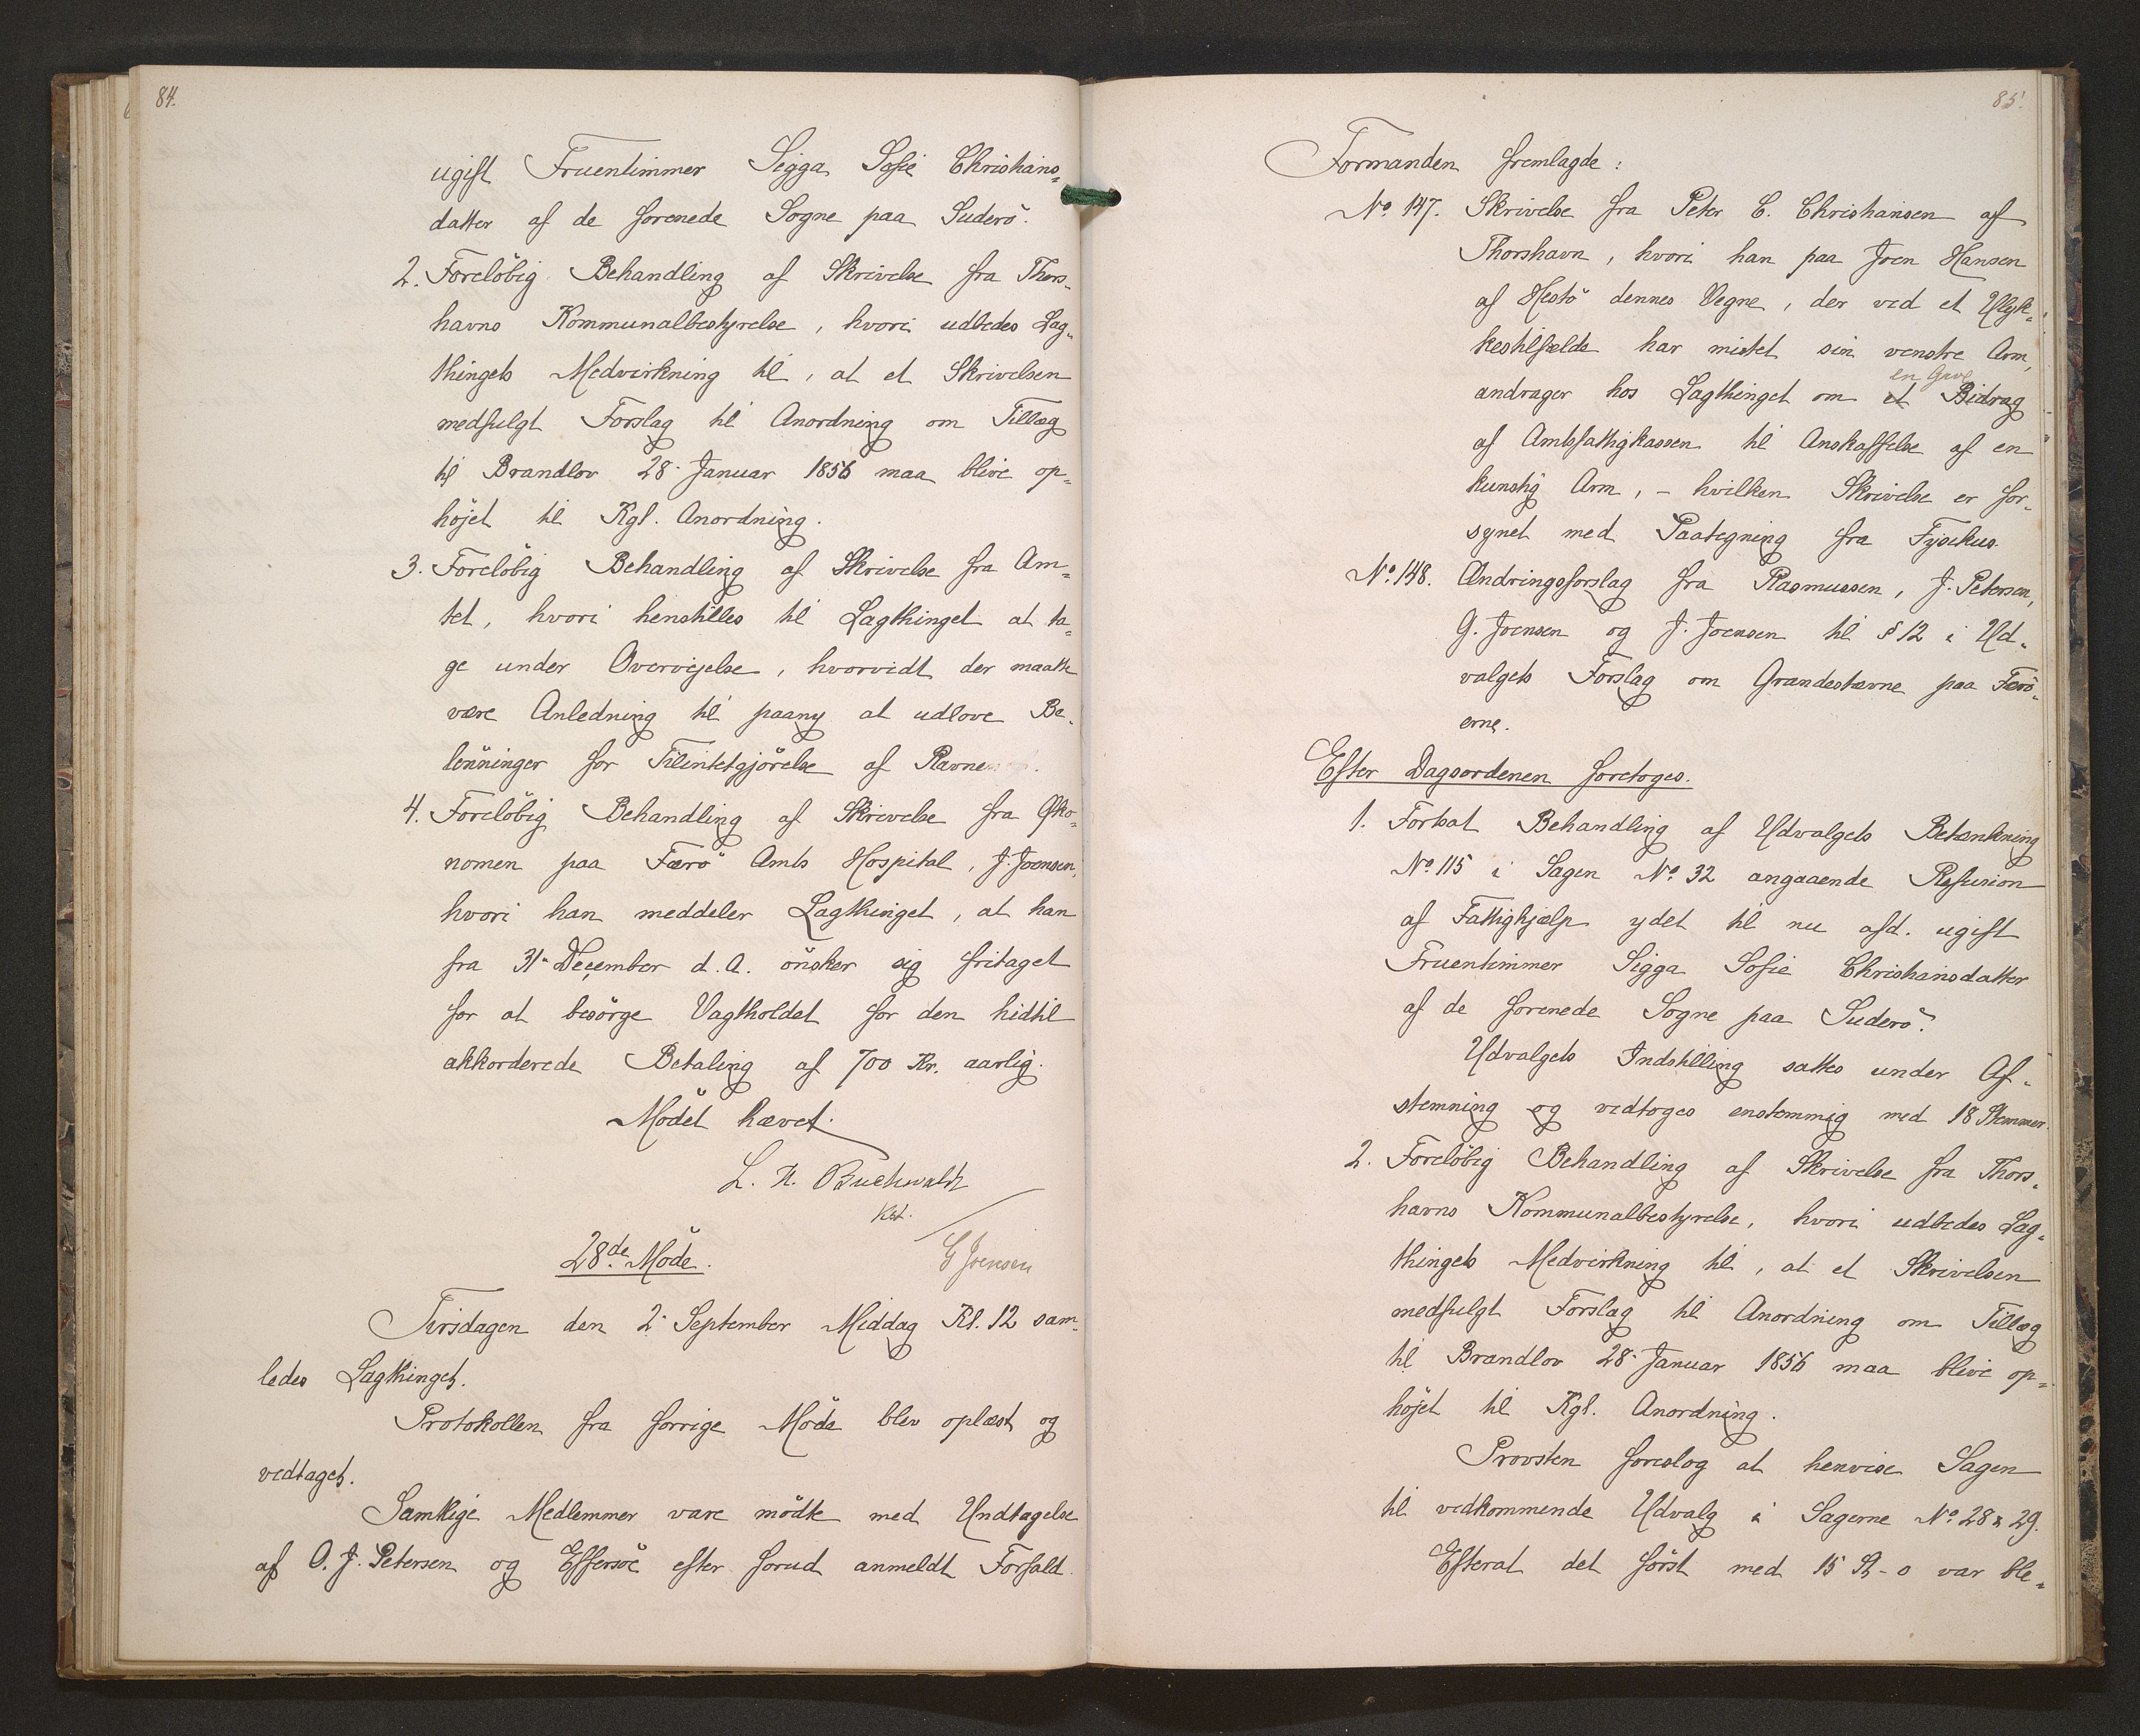 84.
ugift Fruentimmer Sigga Sofie Christians-
datter af de forenede Sogne paa Suderö.
2. Foreløbig Behandling af Skrivelse fra Thors-
havns Kommunalbestyrelse, hvori udbedes Lag-
thingets Medvirkning til, at et Skrivelsen
medfulgt Forslag til Anordning om Tillæg
til Brandlov 28. Januar 1856 maa blive op-
höjet til Kgl. Anordning.
3. Forelöbig Behandling af Skrivelse fra Am-
tet, hvori henstilles til Lagthinget at ta-
ge under Overvejelse, hvorvidt der maatte
være Anledning til paany at udlove Be-
lönninger for Tilintetgjörelse af Ravne
4. Forelöbig Behandling af Skrivelse fra Øko-
nomen paa Færö Amts Hospital, J. Joensen,
hvori han meddeler Lagthinget, at han
fra 31. December d. A. önsker sig fritaget
for at besörge Vagtholdet for den hidtil
akkorderede Betaling af 700 Kr. aarlig.
Mödet hævet.
L. H. Buchwaldt
Kst.
G Joensen
28de Möde.
Tirsdagen den 2. September Middag Kl. 12 sam-
ledes Lagthinget.
Protokollen fra forrige Möde blev oplæst og
vedtaget.
Samtlige Medlemmer vare mödte med Undtagelse
af O. J. Petersen og Effersöe efter forud anmeldt Forfald.
85.
Formanden fremlagde:
No. 147. Skrivelse fra Peter C. Christiansen af
Thorshavn, hvori han paa Joen Hansen
af Hestö dennes Vegne, der ved et Ulyk-
kestilfælde har mistet sin venstre Arm,
en Gave
andrager hos Lagthinget om et Bidrag
af Amtsfattigkassen til Anskaffelse af en
kunstig Arm, - hvilken Skrivelse er for-
synet med Paategning fra Fysikus.
No. 148. Ændringsforslag fra Rasmussen, J. Petersen,
G. Joensen og J. Joensen til § 12 i Ud-
valgets Forslag om Grandestævne paa Færö-
erne.
Efter Dagsordenen foretoges.
1. Fortsat Behandling af Udvalgets Betænkning
No. 115 i Sagen No. 32 angaaende Refusion
af Fattighjælp ydet til nu afd. ugift
Fruentimmer Sigga Sofie Christiansdatter
af de forenede Sogne paa Suderö.
Udvalgets Indstilling sattes under Af-
stemning og vedtoges enstemmig med 18 Stemmer.
2. Forelöbig Behandling af Skrivelse fra Thors-
havns Kommunalbestyrelse, hvori udbedes Lag-
thingets Medvirkning til, at et Skrivelsen
medfulgt Forslag til Anordning om Tillæg
til Brandlov 28. Januar 1856 maa blive op-
höjet til Kgl. Anordning.
Provsten foreslog at henvise Sagen
til vedkommende Udvalg i Sagerne No. 28 & 29.
Efterat det först med 15 St - 0 var ble-